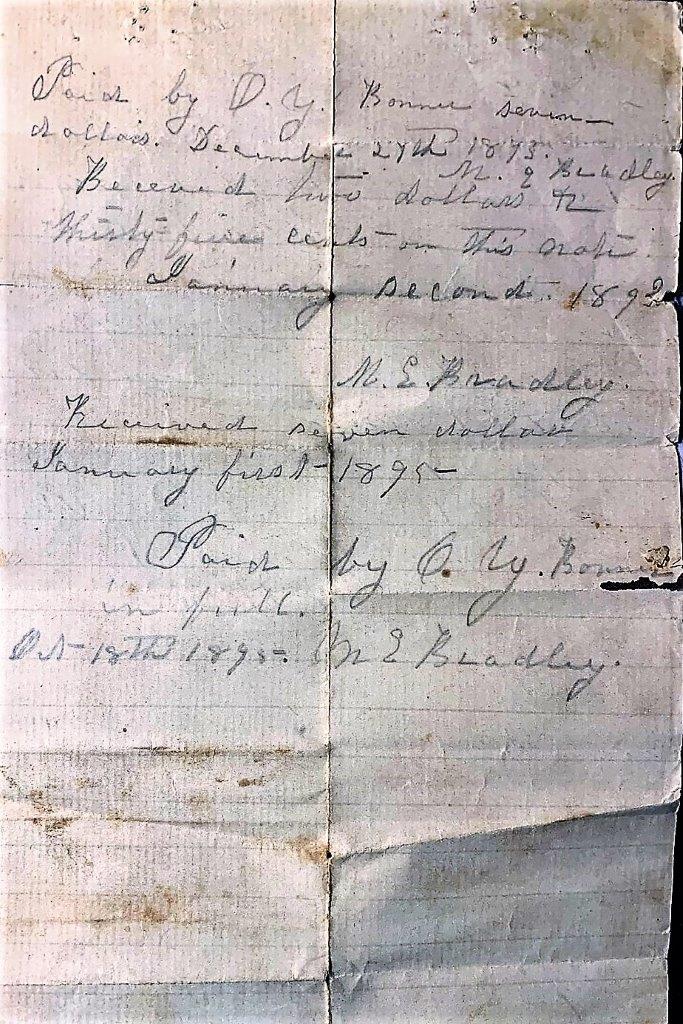 Paid by O. Y. Bonner seven
dollars. December 27th 1893.
M. E Bradley.
Received two dollars &
thirty five cents on this note.
January second. 1892
M. E. Bradley.
Received seven dollar
January first 1895
Paid by O. Y. Bonner
in full.
Oct 18th 1895. M E Bradley.